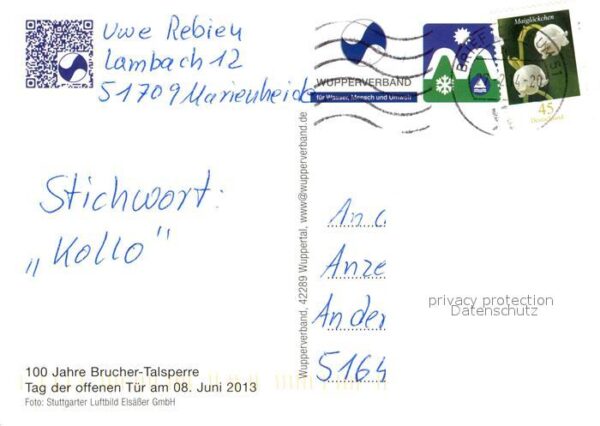 Uwe Rebien
Lambach 12
51709 Marienheide
Stichwort:
„Kollo“
100 Jahre Brucher-Talsperre
Tag der offenen Tür am 08. Juni 2013
Foto: Stuttgarter Luftbild Elsäßer GmbH
Wupperverband, 42289 Wuppertal, www@wupperverband.de
WUPPERVERBAND
für Wasser, Mensch und Umwelt
Maiglöckchen
45
Deutschland
An
Anze
An der
5164
privacy protection
Datenschutz